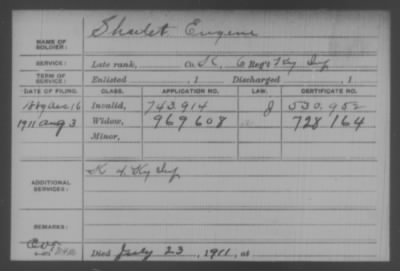 NAME OF SOLDIER: Shailet Eugene
SERVICE: Late rank, Co. K, 6 Reg't Ky Inf
TERM OF SERVICE: Enlisted , 1 Discharged , 1
DATE OF FILING. CLASS. APPLICATION NO. LAW. CERTIFICATE NO.
1889 Aug 16 Invalid, 743.914 J 530.952
1911 Aug 3 Widow, 969608 728164
Minor,
ADDITIONAL SERVICES: K 4 Ky Inf
REMARKS:
Died July 23, 1911, at